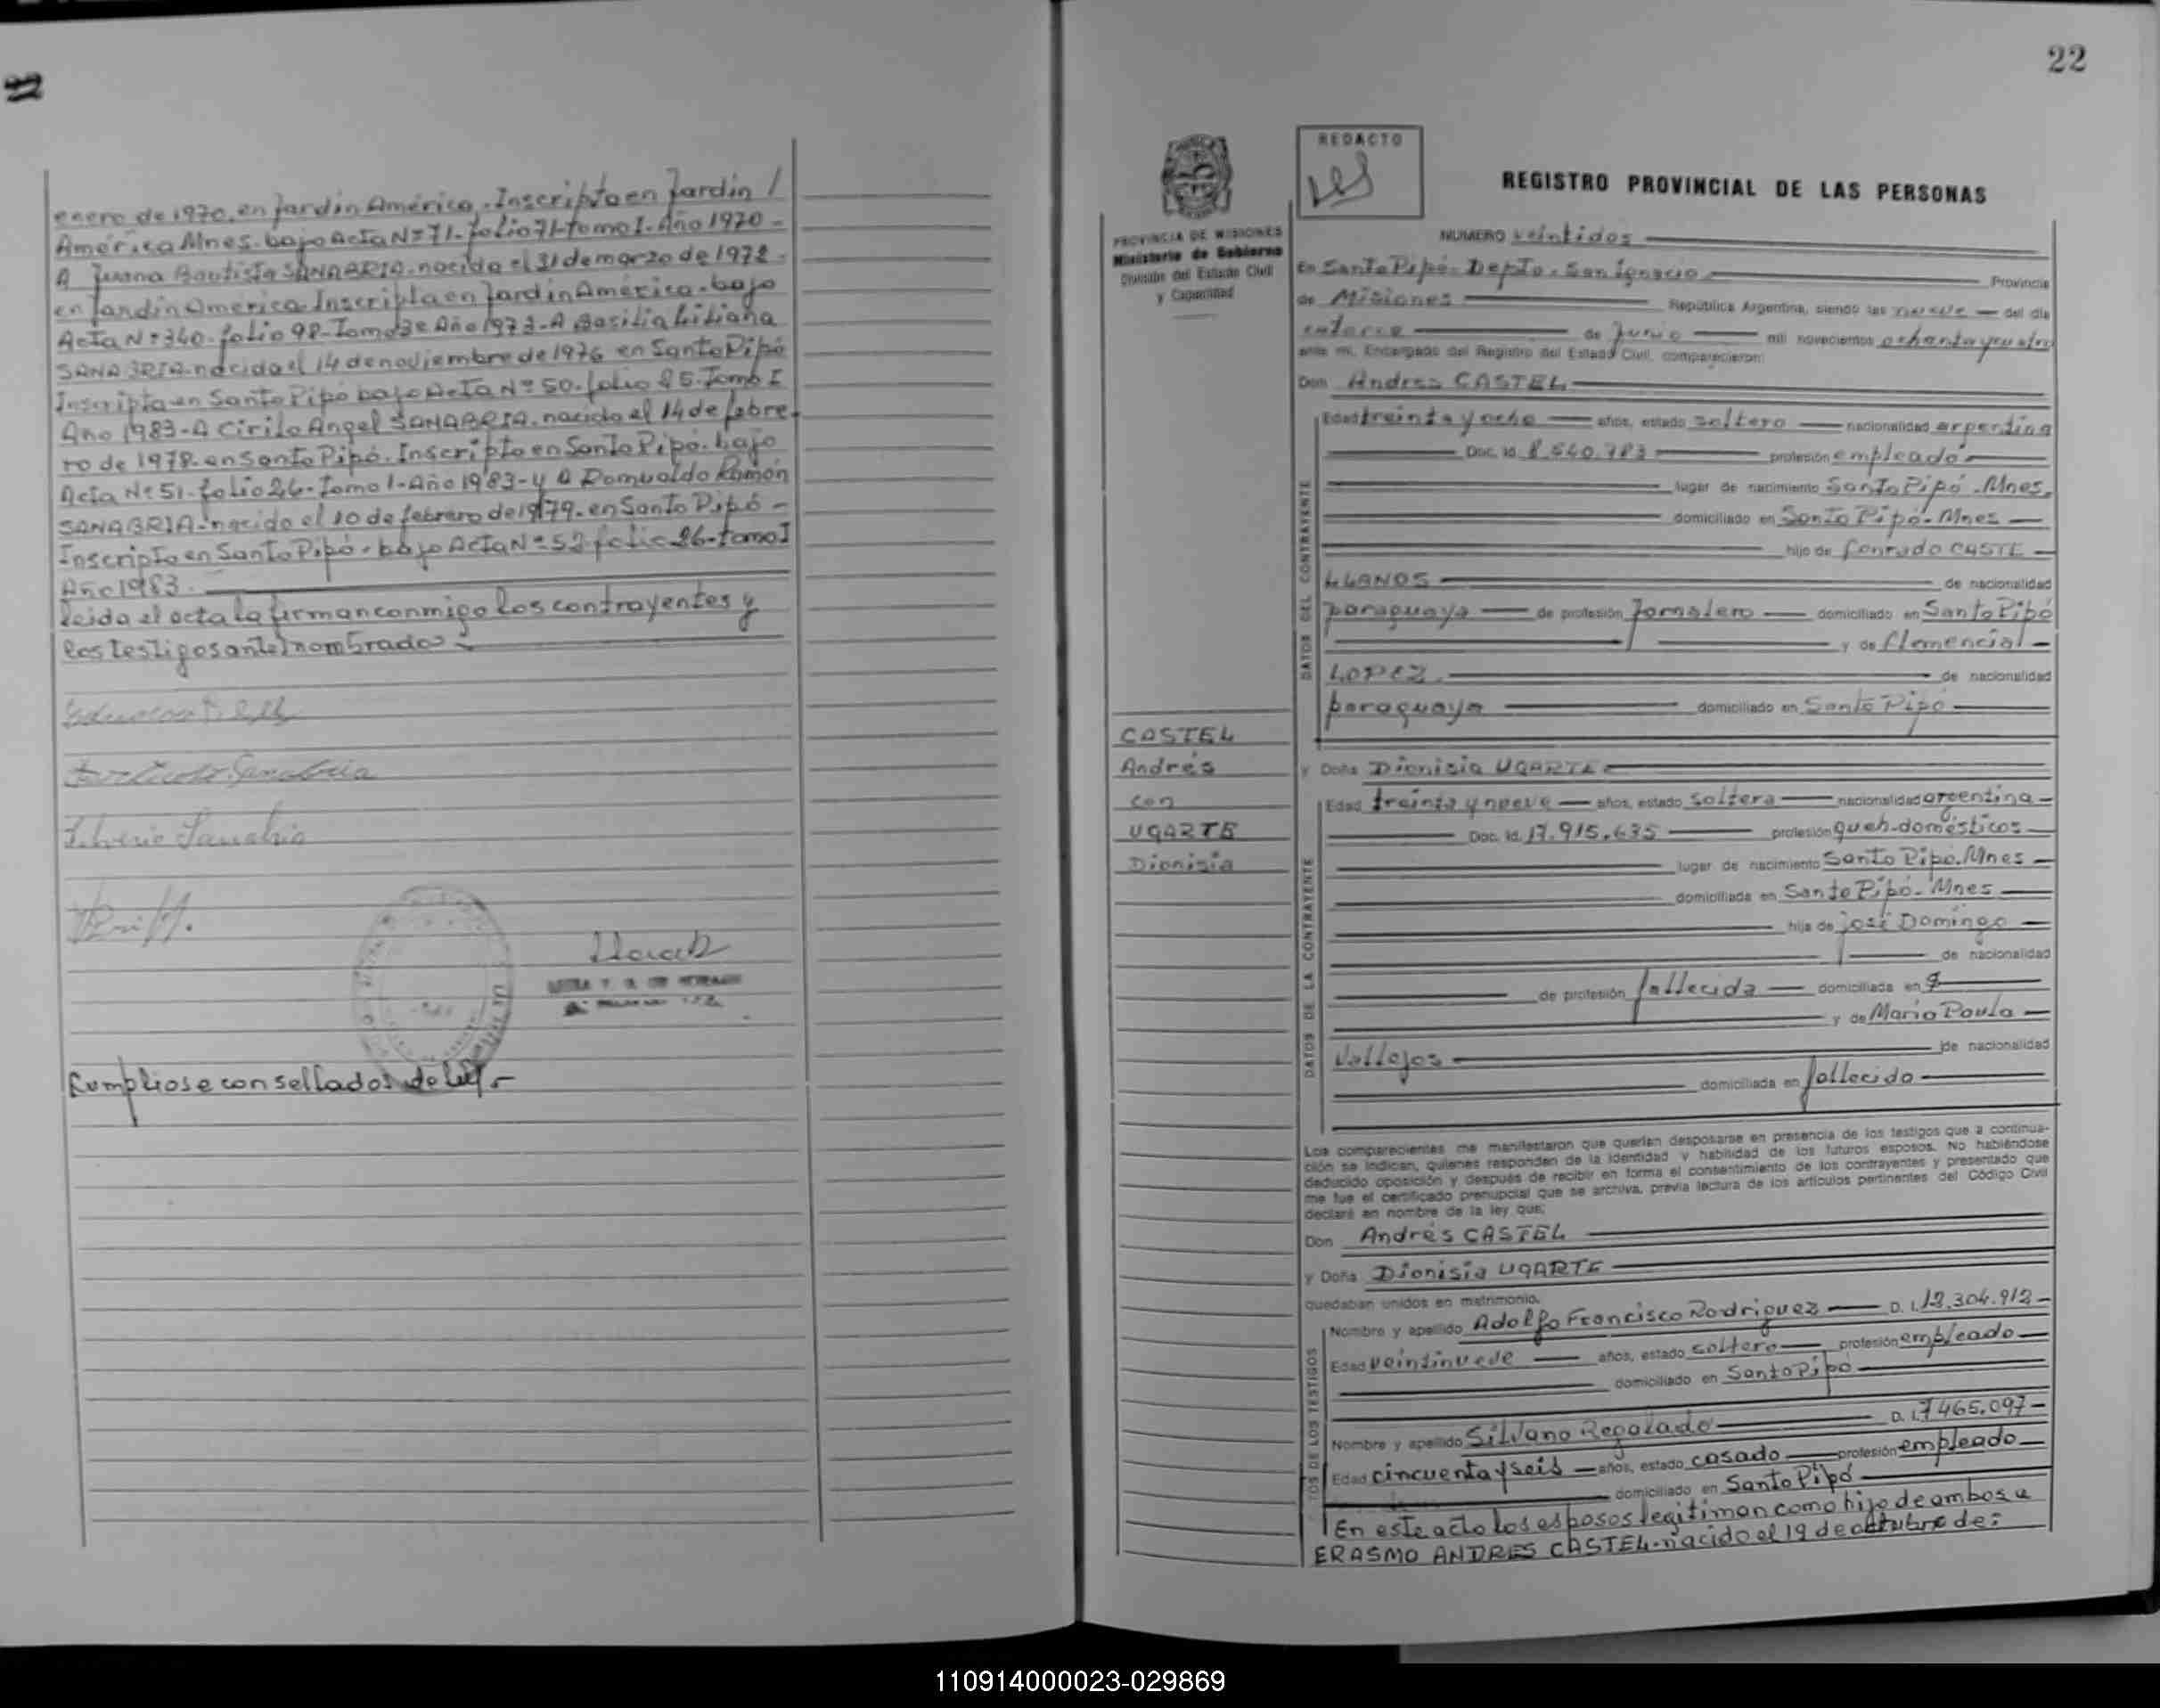 enero de 1970. en Jardín América. Inscripto en Jardín /
América Mnes. bajo Acta Nº 71- folio 71- tomo I- Año 1970 -
A Juana Bautista SANABRIA. nacida el 31 de marzo de 1972 -
en Jardín América. Inscripta en Jardín América. bajo
Acta Nº 340. folio 98- Tomo Año 1973 - A Basilia Liliana
SANABRIA. nacida el 14 de noviembre de 1976 en Santo Pipó
Inscripta en Santo Pipó bajo Acta Nº 50. folio 25. Tomo I
Año 1983 - A Cirilo Angel SANABRIA. nacido el 14 de febre-
ro de 1978. en Santo Pipó. Inscripto en Santo Pipó. bajo
Acta Nº 51. folio 26. Tomo I - Año 1983 - y A Romualdo Ramón
SANABRIA - nacido el 10 de febrero de 1979. en Santo Pipó -
Inscripto en Santo Pipó - bajo Acta Nº 52 folio 26 - tomo I
Año 1983.
leída el acta la firman conmigo los contrayentes y
los testigos antes nombrados.
Sanabria
Cumpliose con sellados de ley. -
22
REDACTO
REGISTRO PROVINCIAL DE LAS PERSONAS
PROVINCIA DE MISIONES
Ministerio de Gobierno
División del Estado Civil
y Capacidad
CASTEL
Andrés
con
UGARTE
Dionisia
NUMERO veintidos
En Santo Pipó - Depto. San Ignacio Provincia
de Misiones República Argentina, siendo las nueve del día
catorce de Junio mil novecientos ochenta y cuatro
ante mí, Encargado del Registro del Estado Civil, comparecieron:
Don Andrés CASTEL
DATOS DEL CONTRAYENTE
Edad treinta y ocho años, estado soltero nacionalidad argentina
Doc. Id. 8.540.783 profesión empleado
lugar de nacimiento Santo Pipó - Mnes.
domiciliado en Santo Pipó - Mnes
hijo de Conrado CASTE
LLANOS de nacionalidad
paraguaya de profesión Jornalero domiciliado en Santo Pipó
y de Clemencia
LOPEZ. de nacionalidad
paraguaya domiciliado en Santo Pipó
y Doña Dionisia UGARTE
DATOS DE LA CONTRAYENTE
Edad treinta y nueve años, estado soltera nacionalidad argentina
Doc. Id. 17.915.635 profesión queh-domésticos
lugar de nacimiento Santo Pipó. Mnes
domiciliada en Santo Pipó - Mnes
hija de José Domingo
de nacionalidad
de profesión fallecida domiciliada en
y de María Paula
Vallejos de nacionalidad
domiciliada en fallecido
Los comparecientes me manifestaron que querían desposarse en presencia de los testigos que a continua-
ción se indican, quienes responden de la identidad y habilidad de los futuros esposos. No habiéndose
deducido oposición y después de recibir en forma el consentimiento de los contrayentes y presentado que
me fue el certificado prenupcial que se archiva, previa lectura de los artículos pertinentes del Código Civil
declaré en nombre de la ley que;
Don Andrés CASTEL
y Doña Dionisia UGARTE
quedaban unidos en matrimonio.
TOS DE LOS TESTIGOS
Nombre y apellido Adolfo Francisco Rodriguez D. I. 12.304.912
Edad veintinueve años, estado soltero profesión empleado
domiciliado en Santo Pipó
Nombre y apellido Silvano Regalado D. I. 7465.097
Edad cincuenta y seis años, estado casado profesión empleado
domiciliado en Santo Pipó
En este acto los esposos legitiman como hijo de ambos a
ERASMO ANDRES CASTEL. nacido el 19 de octubre de:
110914000023-029869